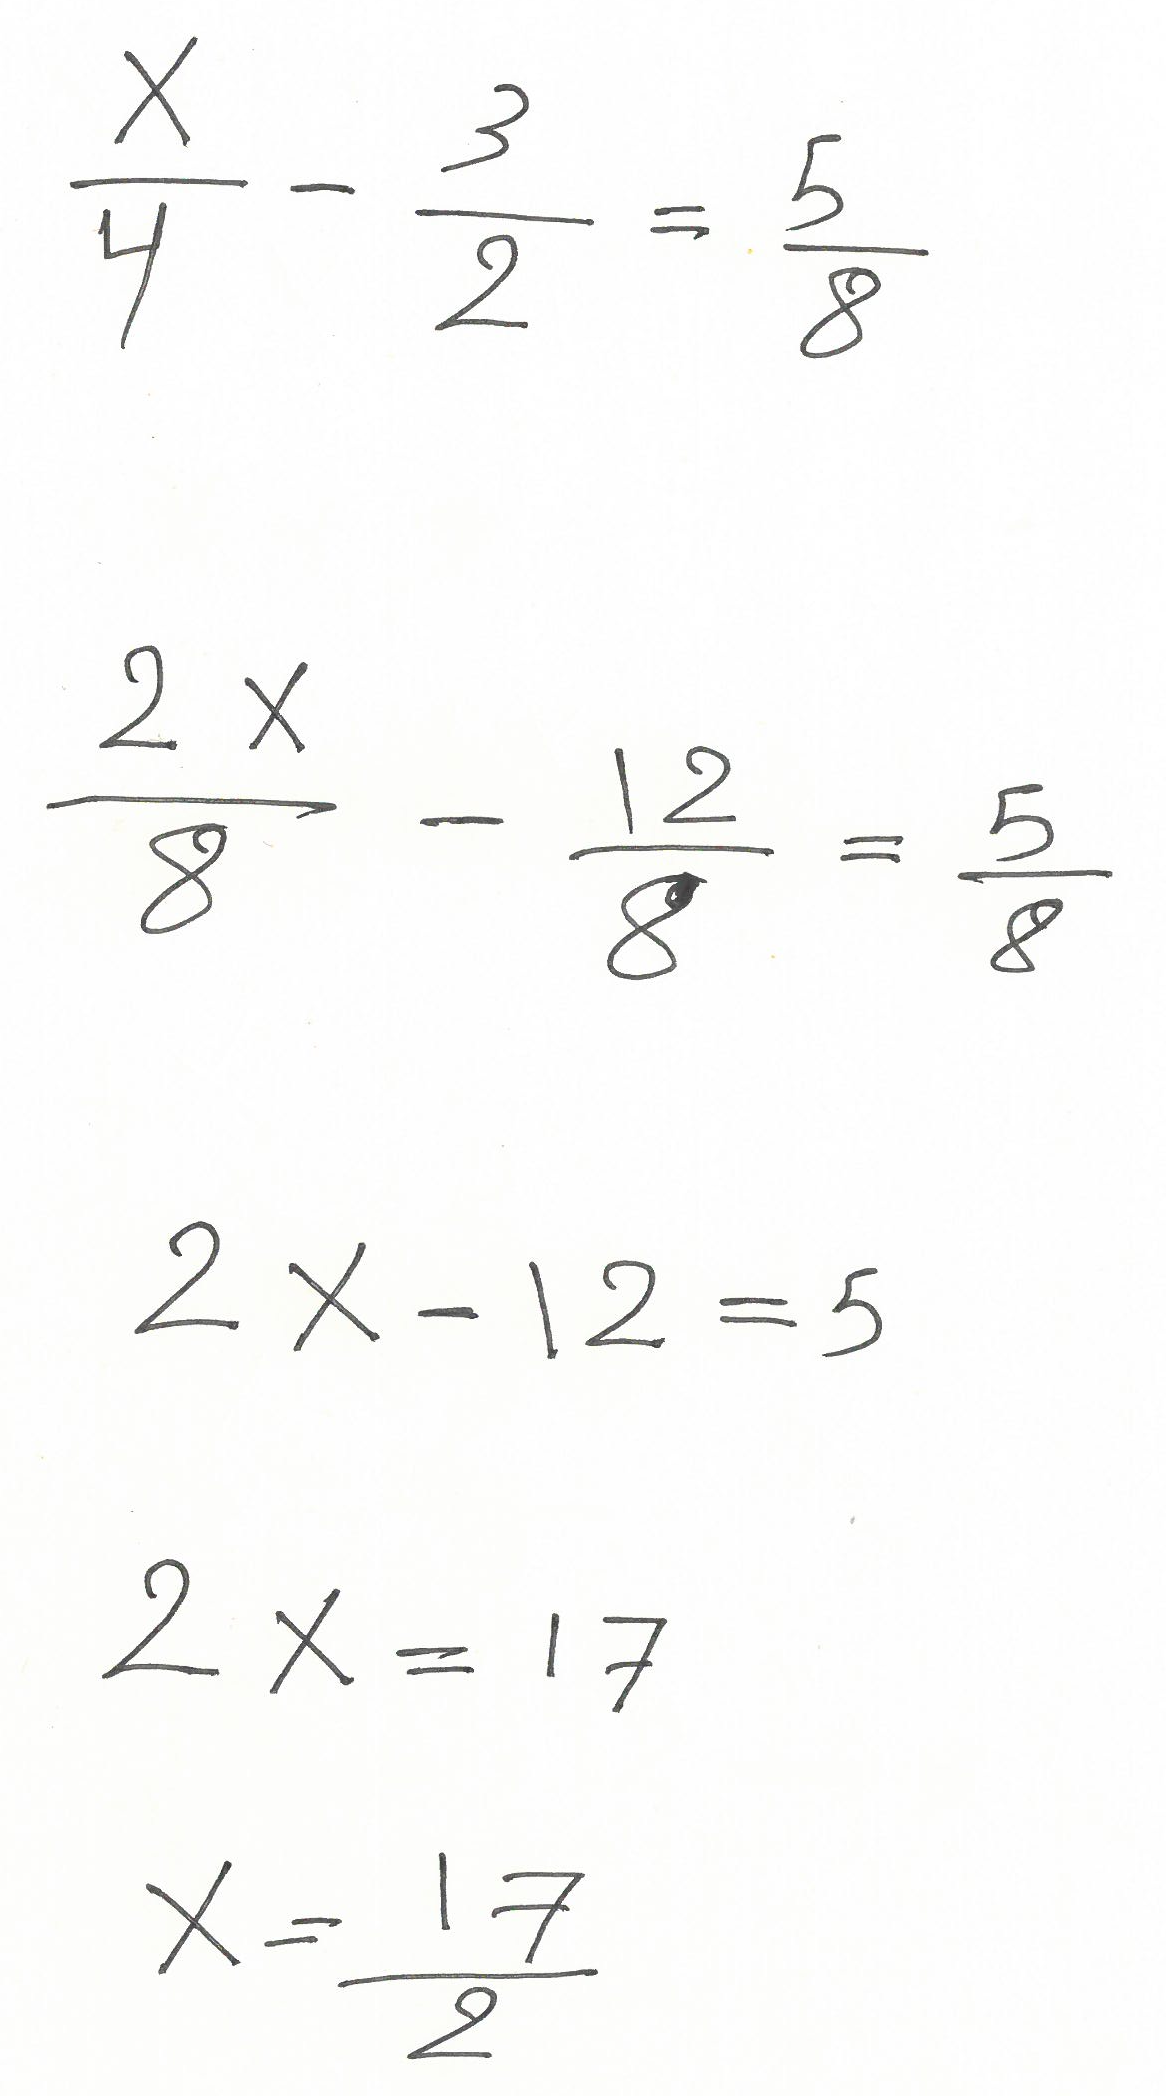 x/4 - 3/2 = 5/8
2x/8 - 12/8 = 5/8
2x - 12 = 5
2x = 17
x = 17/2